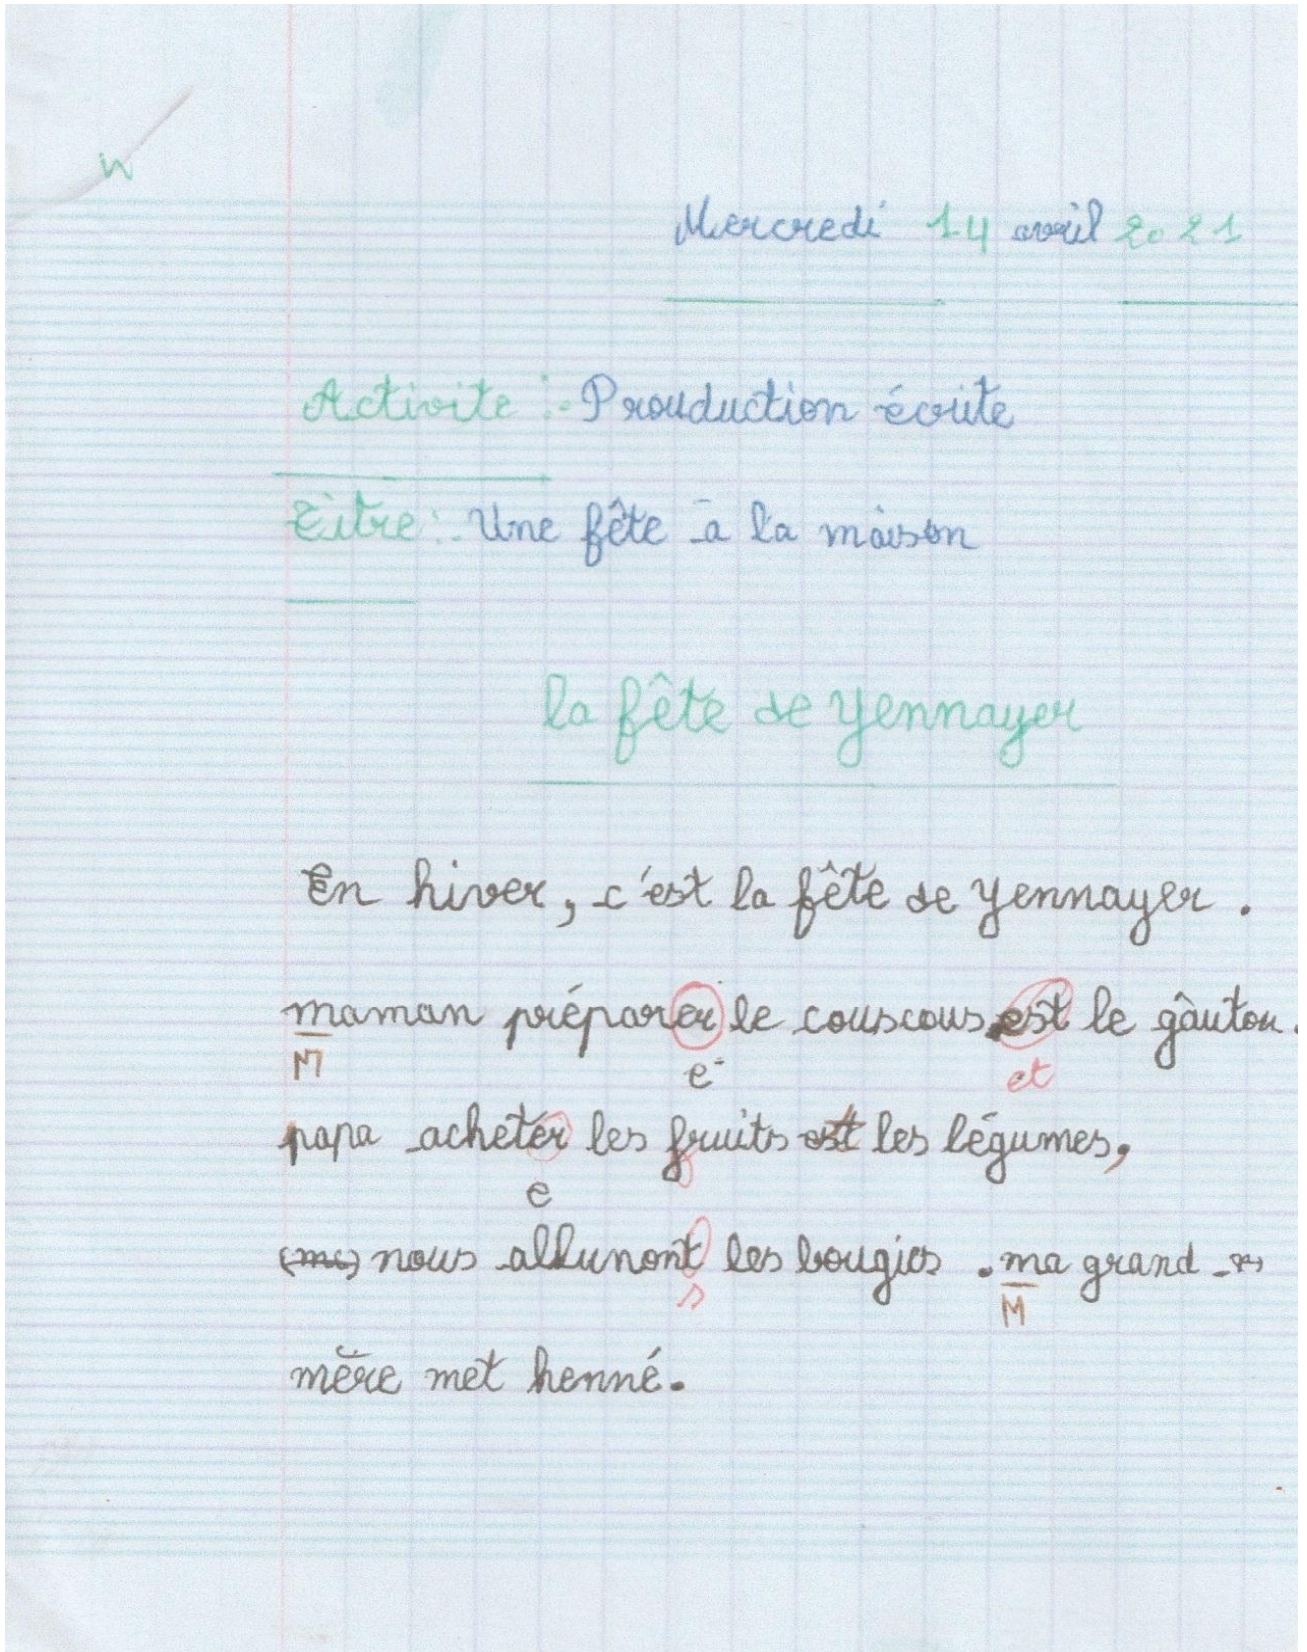 Mercredi 14 avril 2021
Activite : Prouduction écrite
Titre : Une fête à la maison
la fête de yennayer
En hiver, c'est la fête de yennayer .
maman préparer le couscous est le gâutou.
M e et
papa acheter les fruits est les légumes,
e
nous allunont les bougies . ma grand -
s M
mère met henné.